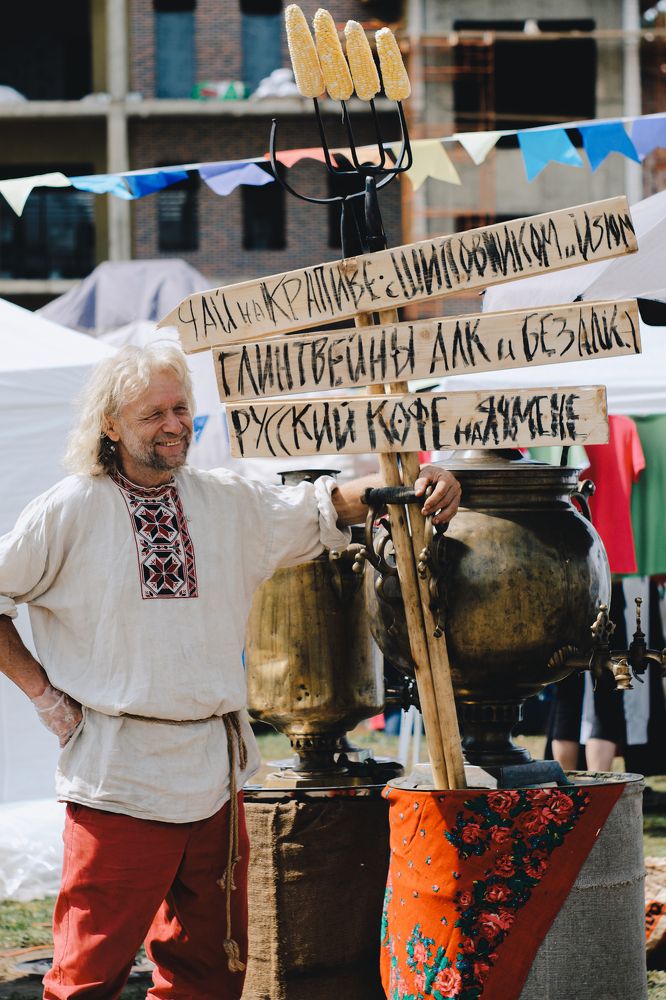 ЧАЙ на КРАПИВЕ с ШИПОВНИКОМ и ИЗЮМ
ГЛИНТВЕЙНЫ АЛК и БЕЗАЛК
РУССКИЙ КОФЕ на ЯЧМЕНЕ